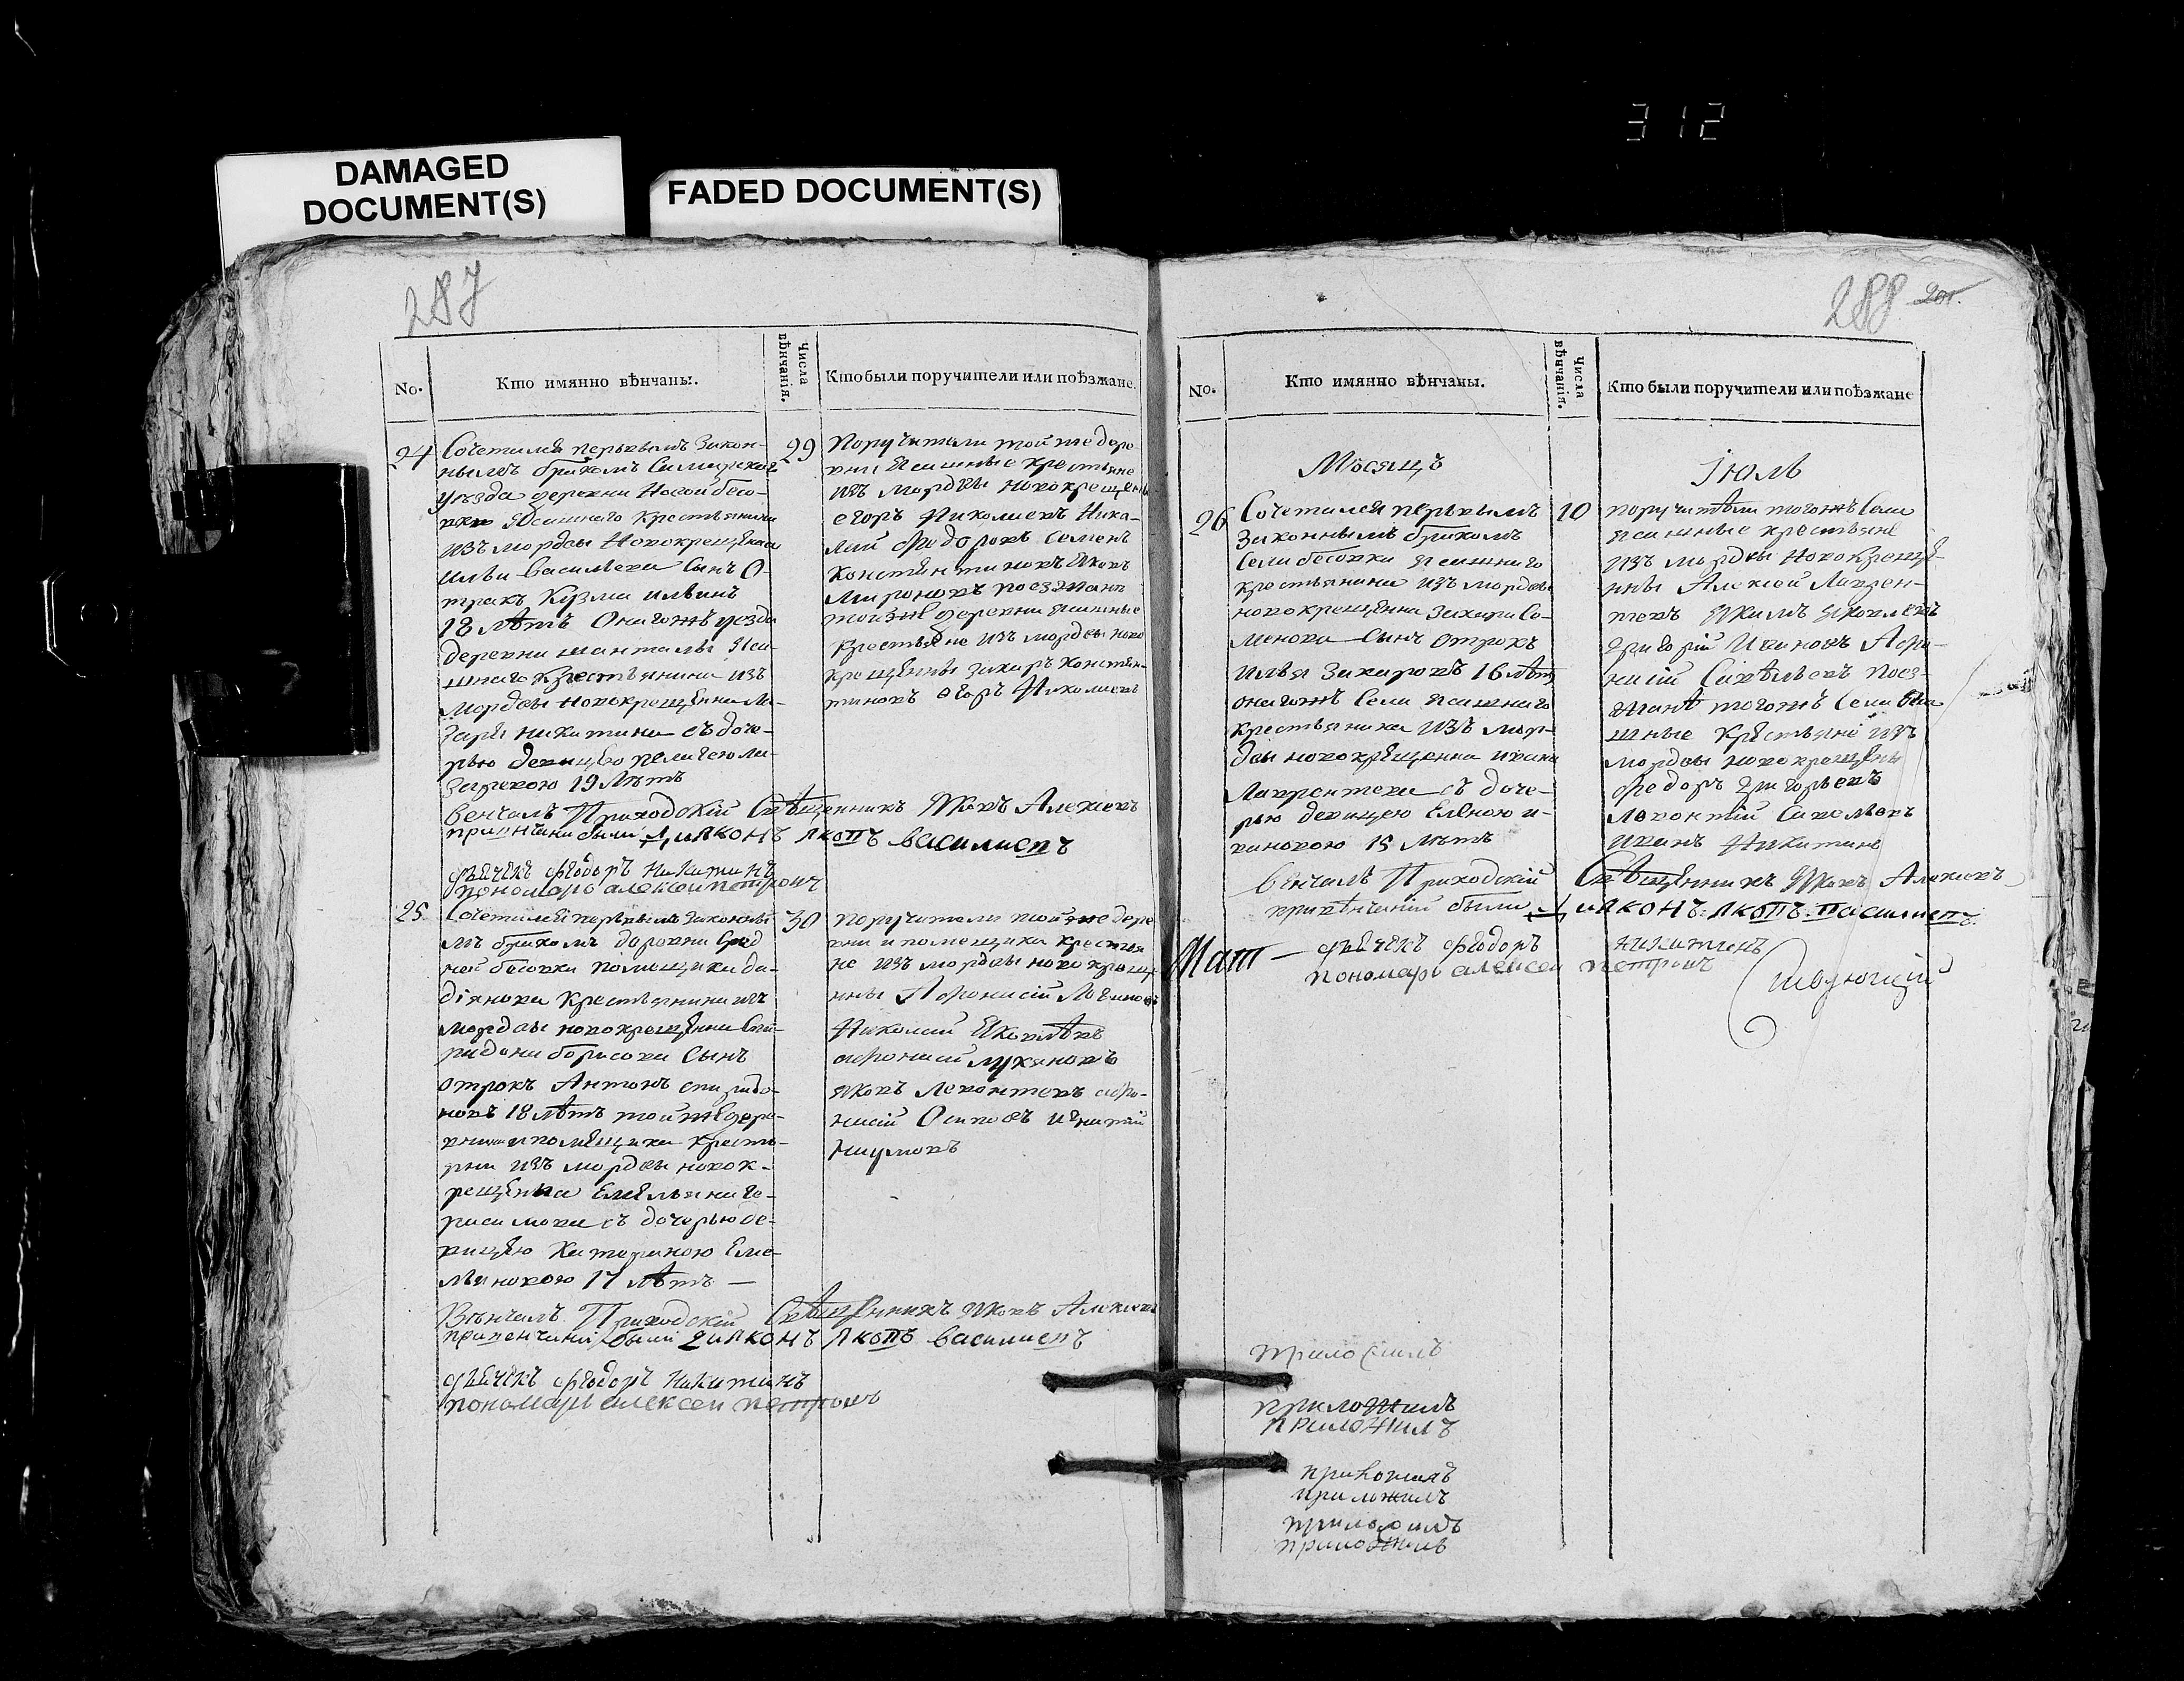 312
DAMAGED
DOCUMENT(S)
FADED DOCUMENT(S)
287
No.
Кто имянно вѣнчаны.
Числа
вѣнчанія.
Кто были поручители или поѣзжане.
24
Сочетался первымъ закон-
нымъ бракомъ
уезда деревни Новой бесо-
вки Ясашнаго крестьянина
изъ мордвы Новокрещенна
Ильи Васильева Сынъ О-
трокъ Кузма Ильинъ
18 лѣтъ Онагожъ уезда
деревни шанталы Яса-
шнаго крестьянина изъ
Мордвы новокрещенна Ла-
заря никитина съ доче-
рью девицею пелагеею ла-
заревою 19 лѣтъ
29
Поручители той же дере-
вни Ясашные крестьяне
изъ мордвы новокрещены
егоръ Николаевъ Нико-
лай Федоровъ Семенъ
Константиновъ Яковъ
Мироновъ поезжанѣ
тоижѣ деревни ясашные
крестьяне изъ мордвы ново
крещенны захаръ констан-
тиновъ егоръ Николаевъ
венчалъ Приходскій Свѣщенникъ Яковъ Алексевъ
были Диаконъ Яковъ Василиевъ
дьячекъ Федоръ Никитинъ
пономарь алексеи петровъ
25
Сочетался первымъ законны
мъ бракомъ деревни Сред
ней бесовки помещика да-
діянова крестьянина изъ
мордвы новокрещенна Спи-
ридона борисова Сынъ
отрокъ Антонъ спиридо-
новъ 18 лѣтъ той же дере-
вни помещика кресть-
яни изъ мордвы новок-
рещенна Емельяна ге-
расимова съ дочерью де-
вицею Катериною Еме-
льяновою 17 лѣтъ —
30
поручители той же дере
вни и помещика крестья
не изъ мордвы новокреще
нны Афонасій Логиновъ
Николай Яковлѣвъ
афонасий лукяновъ
яковъ Леонтевъ афо-
насій Осиповъ игнатій
наумовъ
Вѣнчалъ Приходскій Свѣщенникъ Яковъ Алексевъ
были Диаконъ Яковъ Василиевъ
дьячекъ Федоръ Никитинъ
пономарь алексеи петровъ
288
No.
Кто имянно вѣнчаны.
Числа
вѣнчанія.
Кто были поручители или поѣзжане
Мѣсяцъ
Іюль
26
Сочетался первымъ
законнымъ бракомъ
Села бесовки ясашнаго
крестьянина изъ мордвы
новокрещенна захара Се-
менова Сынъ отрокъ
Илья Захаровъ 16 лѣтъ
онагожъ Села ясашнаго
крестьянина изъ мор-
двы новокрещенна ивана
Лаврентева съ доче-
рью девицею Еленою и-
вановою 15 лѣтъ
10
поручитѣли тогожъ Села
ясашные крестьяне
изъ мордвы новокреще-
нны Алексей Лаврен-
тевъ Якимъ яковлевъ
Григорій Ивановъ Афо-
насій Савѣльевъ Поез-
жанѣ тогожъ Села Яса
шные крестьяне изъ
мордвы новокрещены
Федоръ Григорьевъ
Леонтий Савельевъ
Иванъ Никитинъ
венчалъ Приходскій Свѣщенникъ Яковъ Алексевъ
были Диаконъ Яковъ Василиевъ
дьячекъ Федоръ Никитинъ
пономарь алексеи петровъ
приложилъ
приложилъ
приложилъ
приложилъ
приложилъ
приложилъ